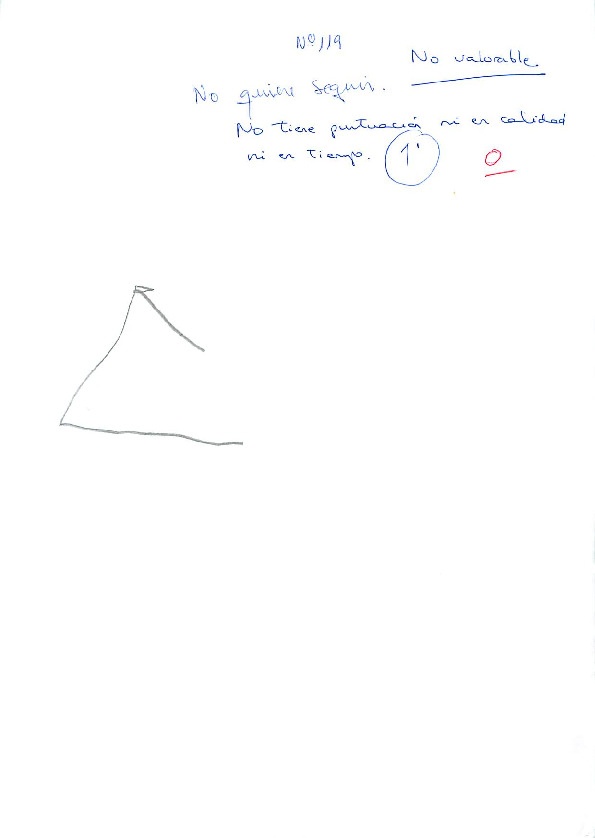 Nº 119
No valorable.
No quiere seguir.
No tiene puntuación ni en calidad
ni en tiempo. 1' 0